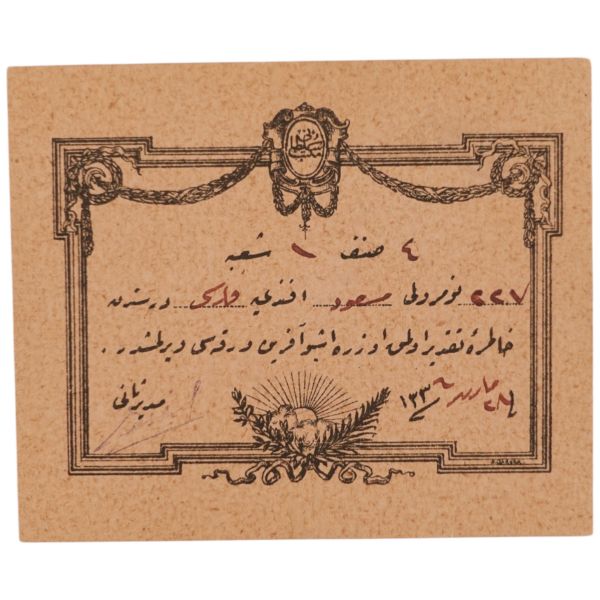 ٤ صنف ١ شعبه
٢٢٧ نومرولی مسعود افندیه فارسی درسندن
خاطرۀ تقدیر اولمق اوزره اشبو آفرین ورقه‌سی ویرلمشدر .
مارت ١٣٣٦
مدیر ثانی